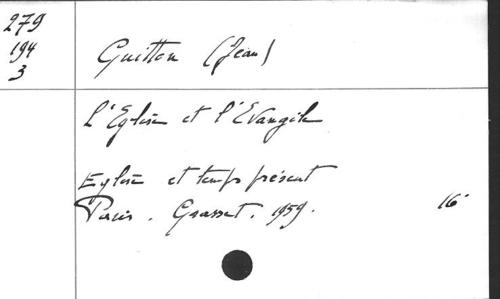 279
194
3
Guitton (Jean)
L'Eglise et l'Evangile
Eglise et temps présent
Paris. Grasset. 1959. 16°